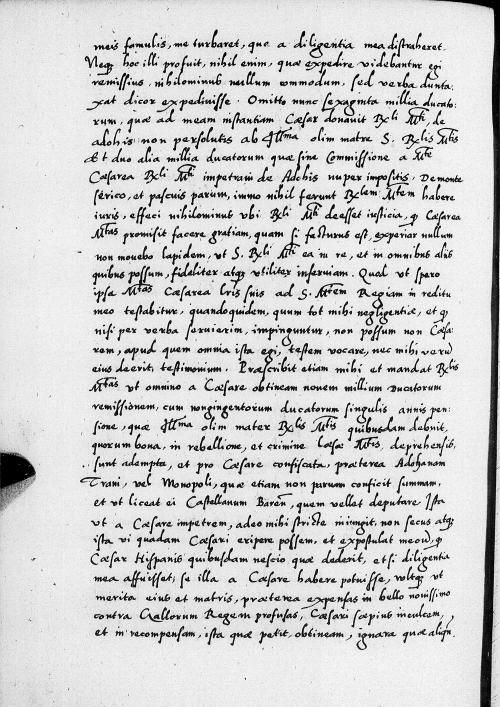 meis famulis, me turbaret, quo a diligentia mea distraheret.
Neqz hoc illi profuit, nihil enim, quae expedire videbantur egi
remissius, nihilominus nullum commodum, sed verba dunta,
xat dicor expedivisse. Omitto nunc sexaginta millia ducato:
rum, quae ad meam instantiam Caesar donavit R.li M.ti, de
adohis non persolutis ab Ill.ma olim matre S. R.lis M.tis
Et duo alia millia ducatorum quae sine commissione a M.te
Caesarea R.li M.ti impetravi de Adohis nuper impositis. De monte
serico, et pascuis parum, immo nihil ferunt R.lem M.tem habere
iuris, effeci nihilominus ubi R.li M.ti deesset iusticia, q Caesarea
M.tas promisit facere gratiam, quam si facturus est, experiar nullum
non movebo lapidem, ut S. R.li M.ti ea in re, et in omnibus aliis
quibus possum, fideliter atqz utiliter inserviam. Quod ut spero
ipsa M.tas Caesarea lris suis ad S. M.tem Regiam in reditu
meo testabitur, quandoquidem, quum tot mihi negligentiae, et q
nisi per verba servierim, impinguntur, non possum non Caesa:
rem, apud quem omnia ista egi, testem vocare, nec mihi vero
eius deerit, testimonium. Praescribit etiam mihi et mandat R.lis
M.tas ut omnino a Caesare obtineam novem millium ducatorum
remissionem, cum nongingentorum ducatorum singulis annis pen:
sione, quae Ill.ma olim mater R.lis M.tis quibusdam debuit,
quorum bona, in rebellione, et crimine laesae M.tis, deprehensis,
sunt adempta, et pro Caesare confiscata, praeterea Adohanam
Trani, vel Monopoli, quae etiam non parvam conficit summam,
et ut liceat ei Castellanum Baren, quem vellet deputare Ista
ut a Caesare impetrem, adeo mihi stricte iniungit, non secus atqz
ista vi quadam Caesari eripere possem, et expostulat mecu, q
Caesar Hispanis quibusdam nescio quae dederit, etsi diligentia
mea affuisset, se illa a Caesare habere potuisse, vultqz ut
merita eius et matris, praeterea expensas in bello novissimo
contra Gallorum Regem profusas, Caesari saepius inculcem,
et in recompensam, ista quae petit, obtineam, ignara quae aliqn